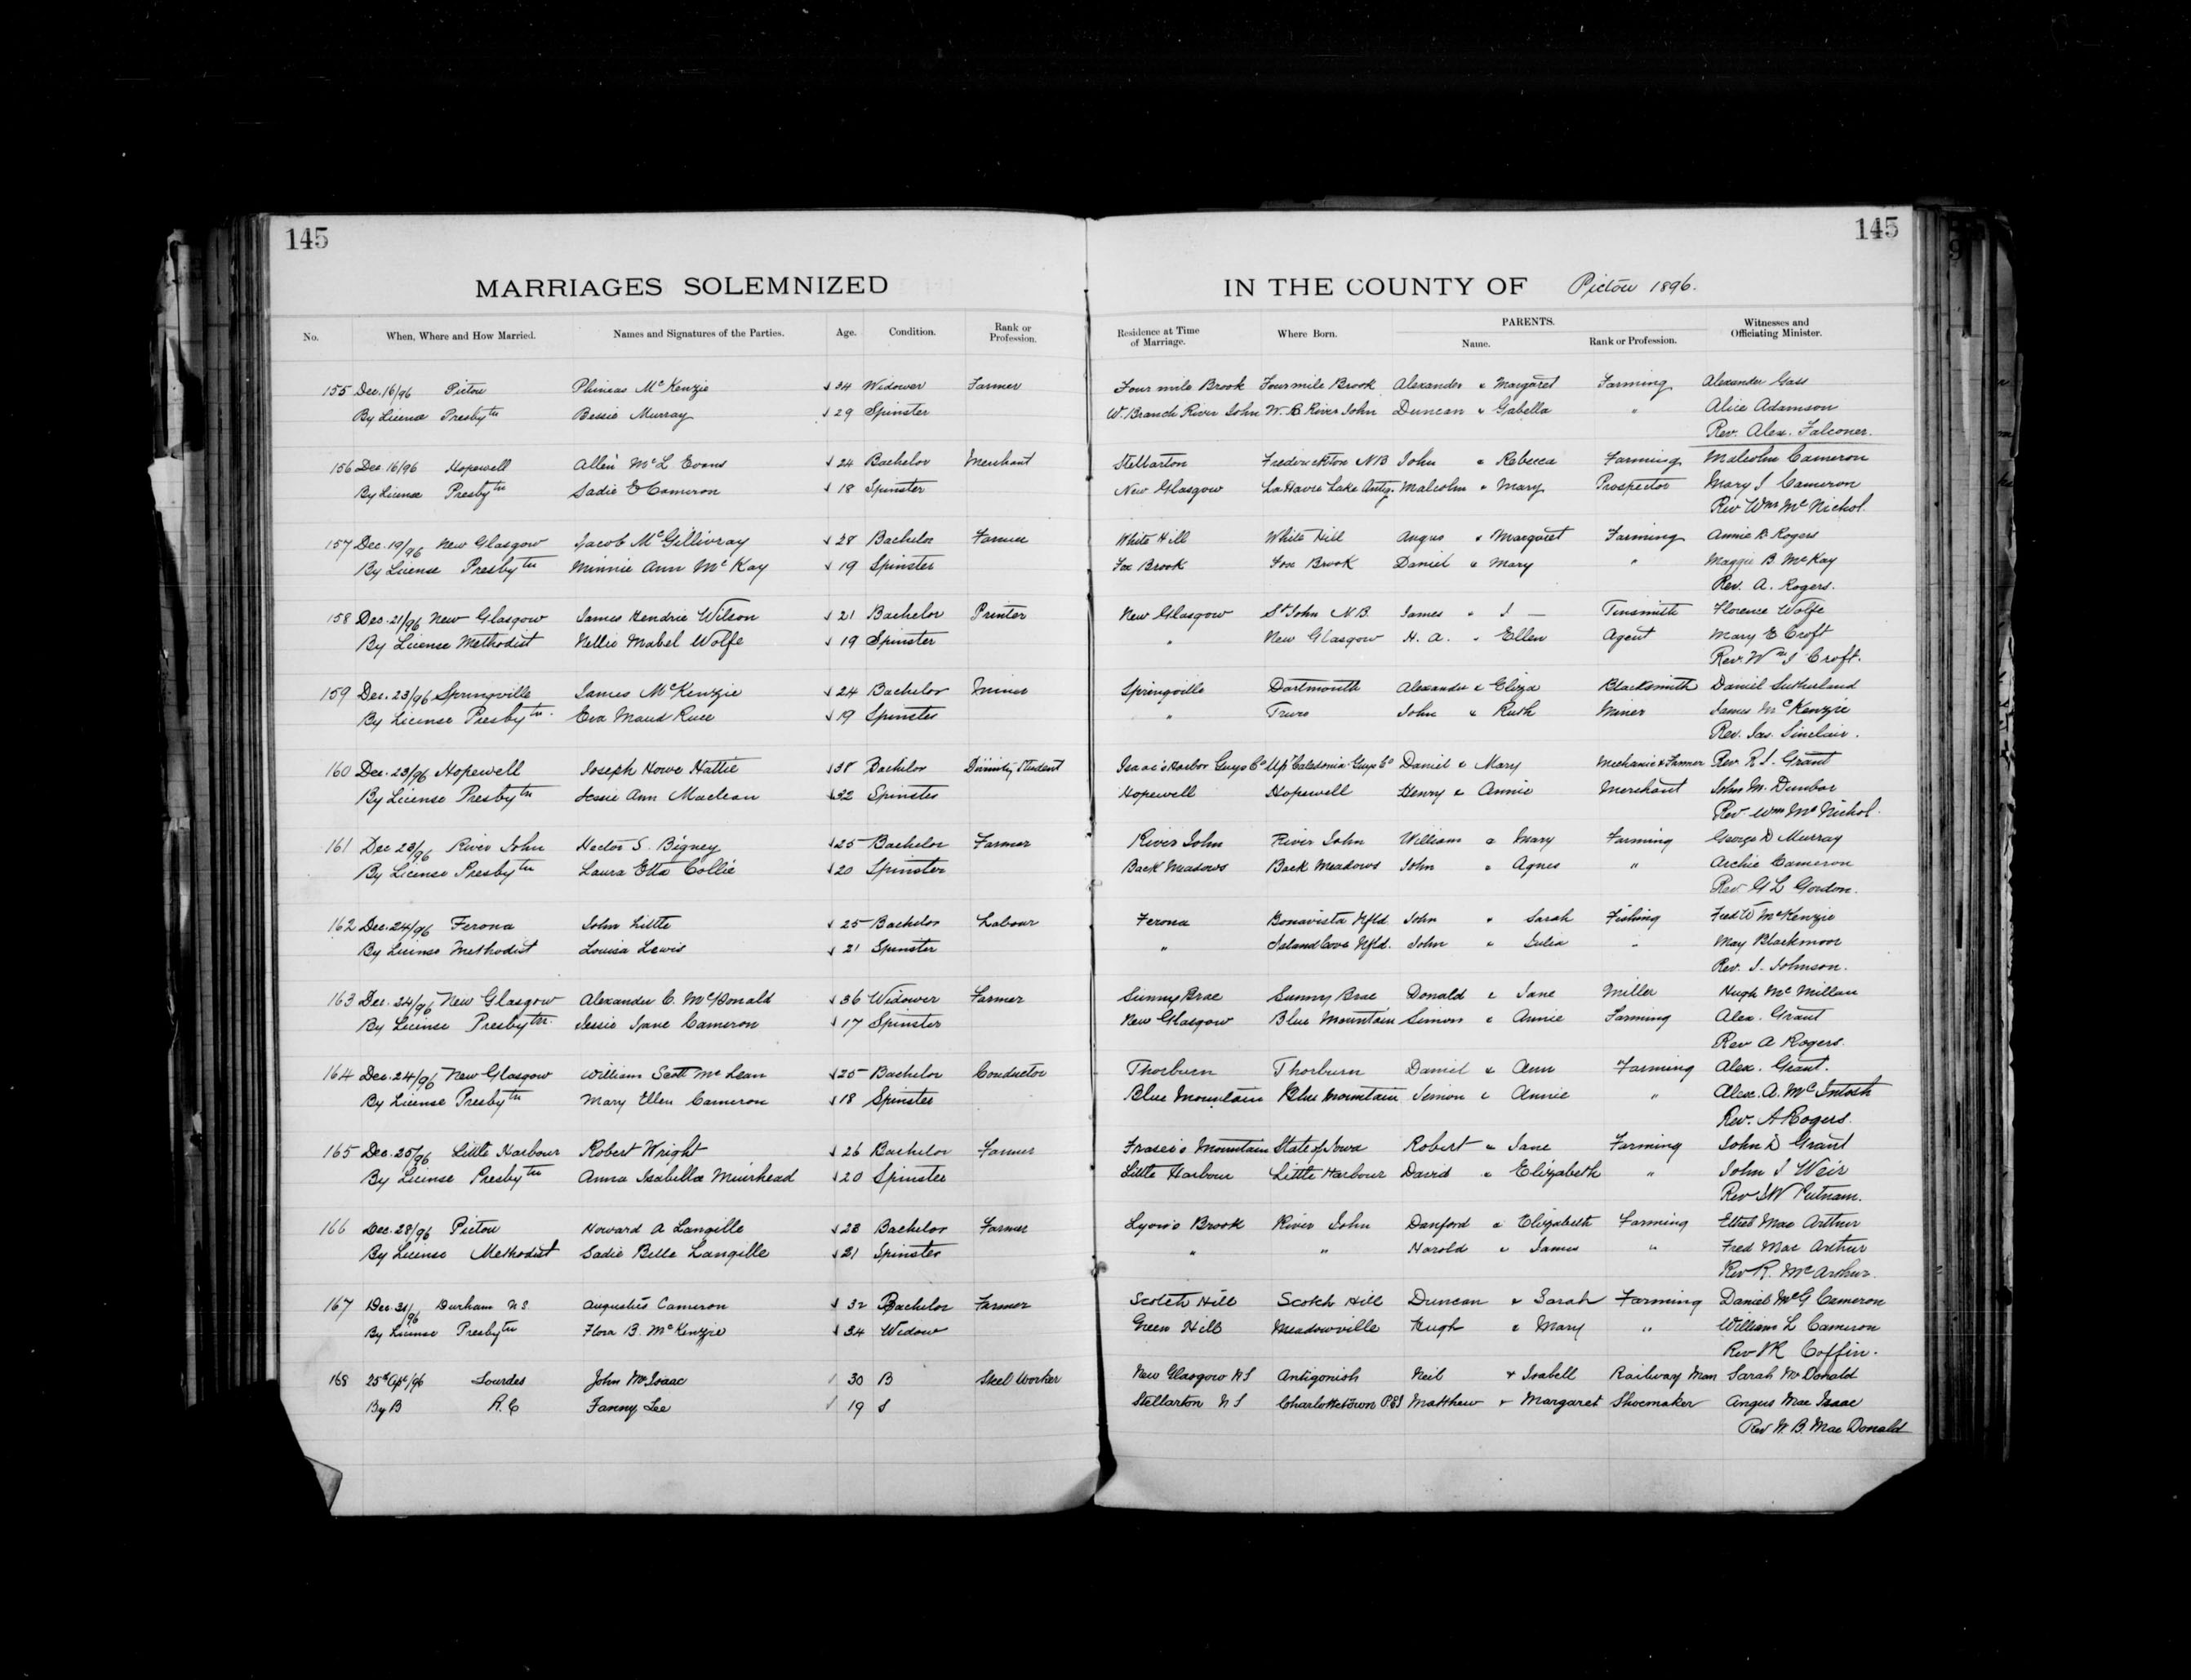 145 145
MARRIAGES SOLEMNIZED IN THE COUNTY OF Pictou 1896.
No. When, Where and How Married. Names and Signatures of the Parties. Age. Condition. Rank or Profession. Residence at Time of Marriage. Where Born. PARENTS. Name. Rank or Profession. Witnesses and Officiating Minister.
155 Dec. 16/96 Pictou Phineas McKenzie 34 Widower Farmer Four mile Brook Four mile Brook Alexander & Margaret Farming Alexander Gass
By License Presbytn Bessie Murray 29 Spinster W. Branch River John W. B. River John Duncan & Isabella " Alice Adamson
Rev. Alex. Falconer.
156 Dec. 16/96 Hopewell Allen McL Evans 24 Bachelor Merchant Stellarton Fredericton NB John & Rebecca Farming Malcolm Cameron
By License Presbytn Sadie E Cameron 18 Spinster New Glasgow Lake Antig. Malcolm & Mary Prospector Mary J Cameron
Rev Wm McNichol.
157 Dec. 19/96 New Glasgow Jacob McGillivray 28 Bachelor Farmer White Hill White Hill Angus & Margaret Farming Annie B Rogers
By License Presbytn Minnie Ann McKay 19 Spinster Fox Brook Fox Brook Daniel & Mary " Maggie B McKay
Rev. A. Rogers.
158 Dec. 21/96 New Glasgow James Hendrie Wilson 21 Bachelor Printer New Glasgow St John N.B. James " J — Tinsmith Florence Wolfe
By License Methodist Nellie Mabel Wolfe 19 Spinster " New Glasgow H. A. " Ellen Agent Mary E Croft
Rev. Wm J Croft.
159 Dec. 23/96 Springville James McKenzie 24 Bachelor Miner Springville Dartmouth Alexander & Eliza Blacksmith Daniel Sutherland
By License Presbytn. Eva Maud Ruee 19 Spinster " Truro John & Ruth Miner James McKenzie
Rev. Jas. Sinclair.
160 Dec. 23/96 Hopewell Joseph Howe Hattie 38 Bachelor Divinity Student Isaac's Harbor Guys Co Upr Caledonia Guys Co Daniel & Mary Mechanic & Farmer Rev. R. J. Grant
By License Presbytn Jessie Ann Maclean 32 Spinster Hopewell Hopewell Henry & Annie Merchant John M. Dunbar
Rev Wm McNichol.
161 Dec 23/96 River John Hector S. Bigney 25 Bachelor Farmer River John River John William & Mary Farming George D Murray
By License Presbytn Laura Etta Collie 20 Spinster Back Meadows Back Meadows John " Agnes " Archie Cameron
Rev G L Gordon.
162 Dec. 24/96 Ferona John Little 25 Bachelor Labour Ferona Bonavista Nfld John " Sarah Fishing Fred W McKenzie
By License Methodist Louisa Lewis 21 Spinster " Island Cove Nfld. John " Julia " May Blackmoor
Rev. J. Johnson.
163 Dec. 24/96 New Glasgow Alexander C. McDonald 36 Widower Farmer Sunny Brae Sunny Brae Donald & Jane Miller Hugh McMillan
By License Presbytn. Jessie Jane Cameron 17 Spinster New Glasgow Blue Mountain Simon & Annie Farming Alex. Grant
Rev A Rogers.
164 Dec. 24/96 New Glasgow William Scott McLean 25 Bachelor Conductor Thorburn Thorburn Daniel & Ann Farming Alex. Grant.
By License Presbytn Mary Ellen Cameron 18 Spinster Blue Mountain Blue Mountain Simon & Annie " Alex. A. McIntosh
Rev. A Rogers.
165 Dec. 25/96 Little Harbour Robert Wright 26 Bachelor Farmer Fraser's Mountain State of Iowa Robert & Jane Farming John D Grant
By License Presbytn Anna Isabella Muirhead 20 Spinster Little Harbour Little Harbour David & Elizabeth " John J Weir
Rev J W Putnam.
166 Dec. 28/96 Pictou Howard A Langille 23 Bachelor Farmer Lyon's Brook River John Danford & Elizabeth Farming Ethel Mac Arthur
By License Methodist Sadie Belle Langille 21 Spinster " " Harold & James " Fred Mac Arthur
Rev R. McArthur.
167 Dec. 31/96 Durham N.S. Augustus Cameron 32 Bachelor Farmer Scotch Hill Scotch Hill Duncan & Sarah Farming Daniel McG Cameron
By License Presbytn Flora B. McKenzie 34 Widow Green Hill Meadowville Hugh & Mary " William L Cameron
Rev Coffin.
168 25th Apl/96 Lourdes John McIsaac 30 B Steel Worker New Glasgow NS Antigonish Neil & Isabell Railway Man Sarah McDonald
By B R.C Fanny Lee 19 S Stellarton NS Charlottetown PEI Matthew & Margaret Shoemaker Angus Mac Isaac
Rev W. B. Mac Donald